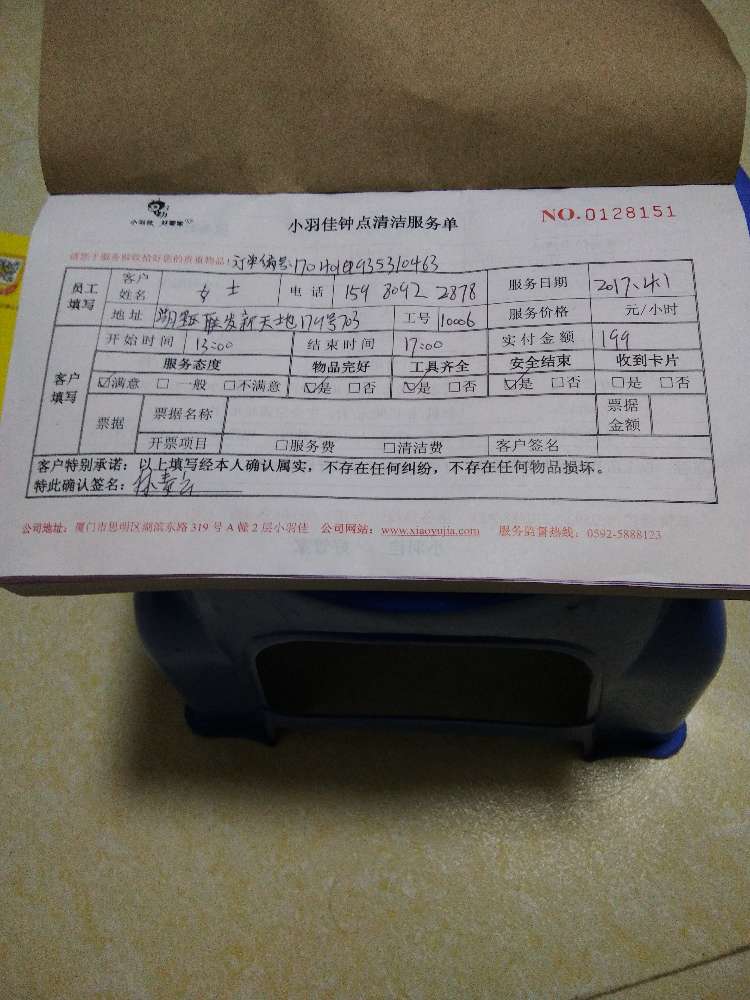 小羽佳 好管家
小羽佳钟点清洁服务单
NO.0128151
请您于服务验收恰好您的贵重物品!
订单编号:
员工填写 客户姓名 女士 电话 159 8092 2878 服务日期 2017.4.1
地址 联发新天地179号703 工号 10006 服务价格 元/小时
客户填写 开始时间 13:00 结束时间 17:00 实付金额 199
服务态度 物品完好 工具齐全 安全结束 收到卡片
☑满意 □一般 □不满意 ☑是 □否 ☑是 □否 ☑是 □否 □是 □否
票据 票据名称 票据金额
开票项目 □服务费 □清洁费 客户签名
客户特别承诺:以上填写经本人确认属实,不存在任何纠纷,不存在任何物品损坏。
特此确认签名:
公司地址:厦门市思明区湖滨东路319号A幢2层小羽佳 公司网站:www.xiaoyujia.com 服务监督热线:0592-5888123